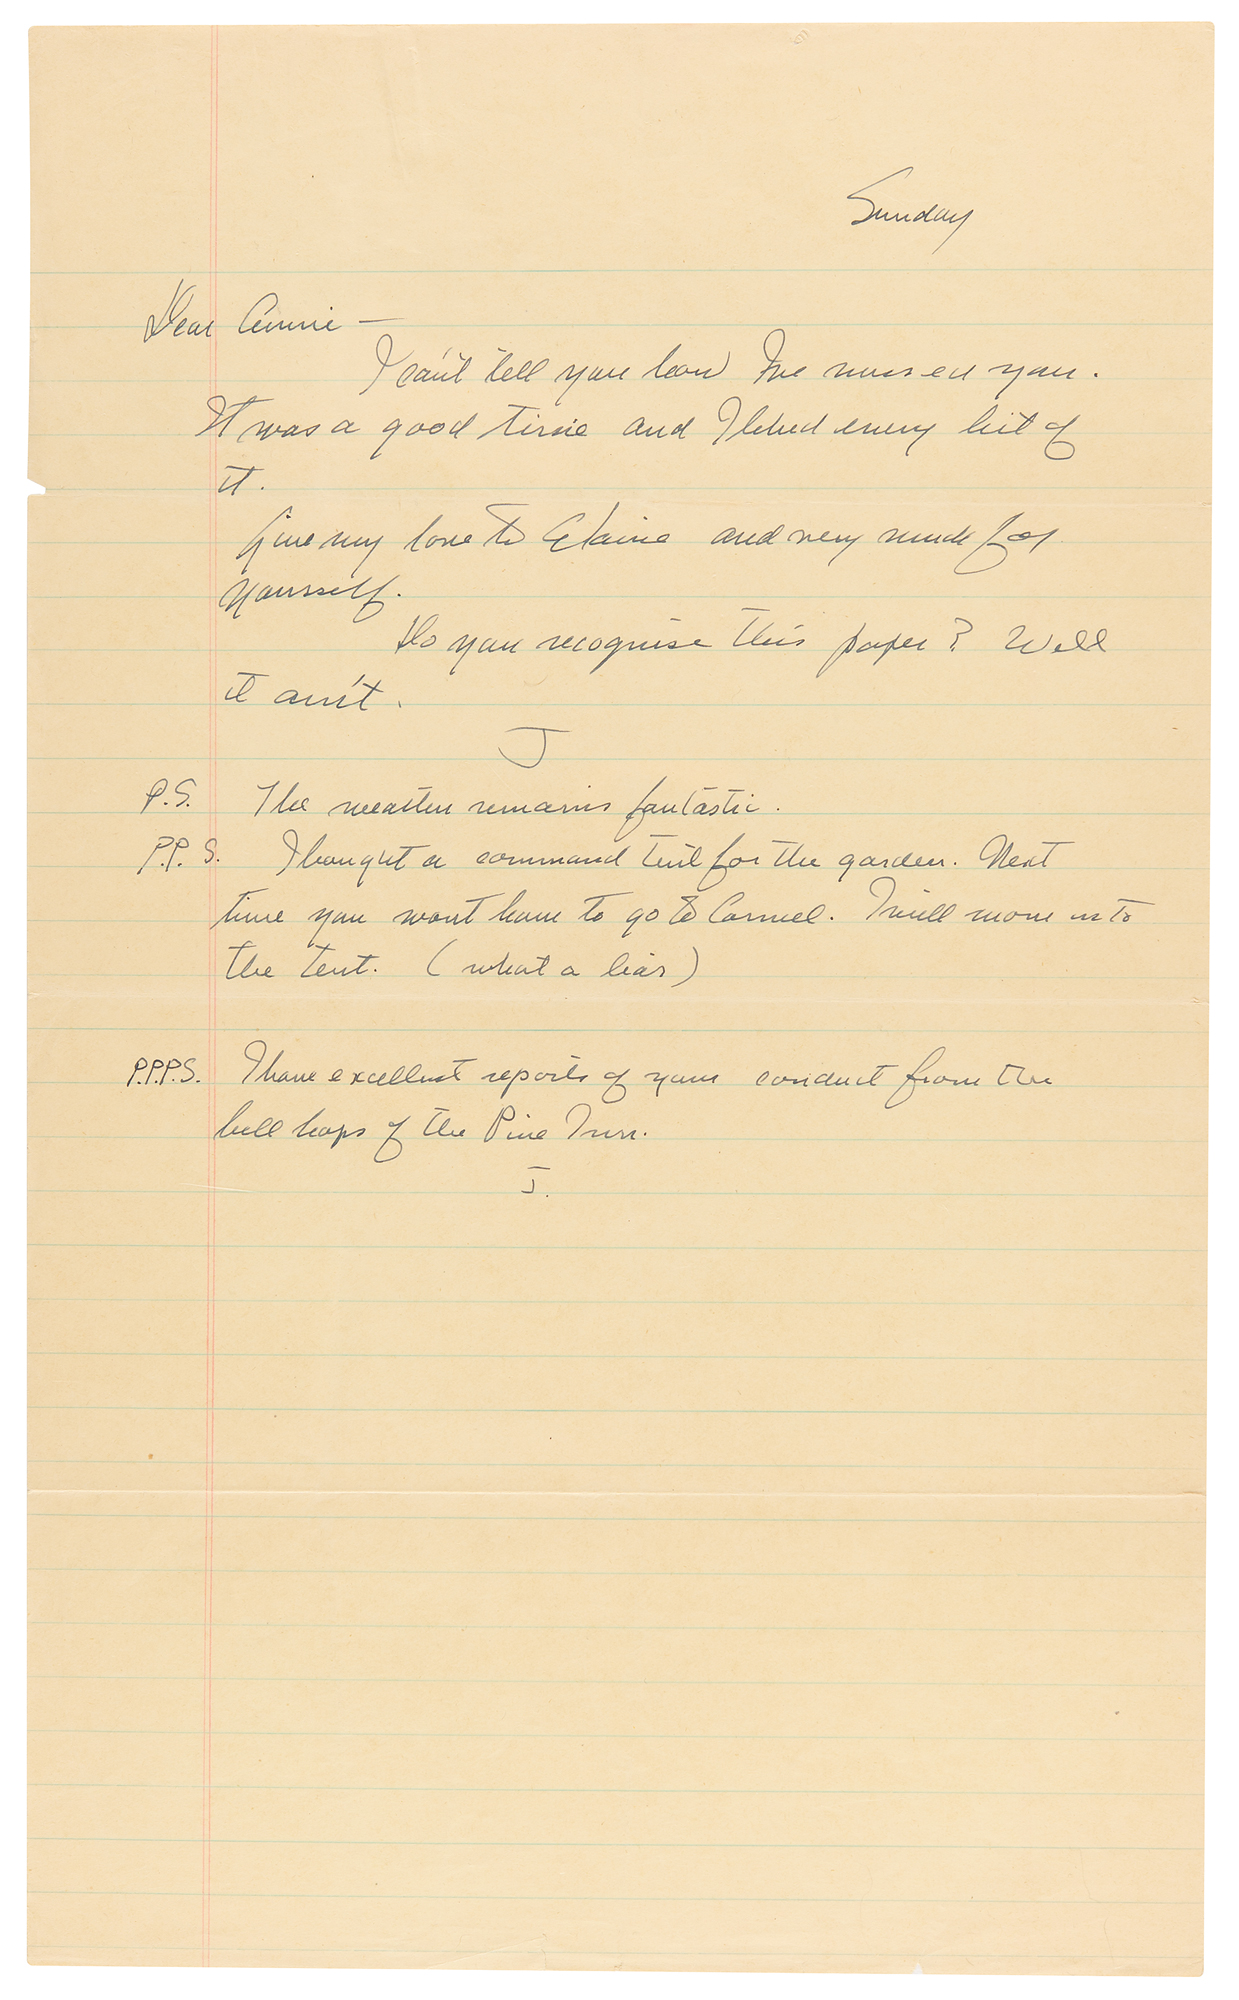 Sunday
Dear Annie —
I can't tell you how I've missed you.
It was a good time and I loved every bit of
it.
Give my love to Elaine and very much for
yourself.
Do you recognise this paper? Well
it ain't.
J
P.S. The weather remains fantastic.
P.P.S. I bought a command tent for the garden. Next
time you wont have to go to Carmel. I will move into
the tent. (what a liar)
P.P.P.S. I have excellent reports of your conduct from the
bell hops of the Pine Inn.
J.